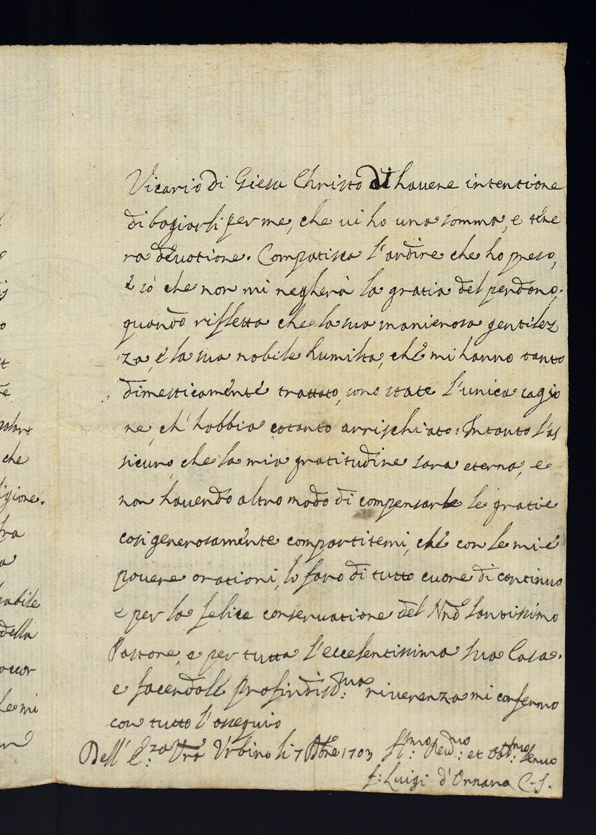 Vicario di Giesu Christo di havere intentione
di bagiarli per me, che vi ho una somma, e tene
ra devotione. Compatisca l'ardire che ho preso,
è so che non mi negherà la gratia del perdono,
quando rifletta che la sua manierosa gentilez
za, è la sua nobile humiltà, che mi hanno tanto
dimesticamente trattato, sono state l'unica cagio
ne, ch'habbia cotanto arrischiato: Intanto l'as
sicuro che la mia gratitudine sara eterna, e
non havendo altro modo di compensarle le gratie
cosi generosamente compartitemi, che con le mie
povere orationi, lo faro di tutto cuore di continuo
e per la felice conservatione del Nrõ Santissimo
Pastore, e per tutta l'eccelentissima sua Casa.
e facendole profindis.ma riverenza mi confermo
con tutto l'ossequio
Dell' E.za Vrã Urbino li 7 1703 et servo
f: Luigi d'Ornano C.S.
che
igione.
della
le mi